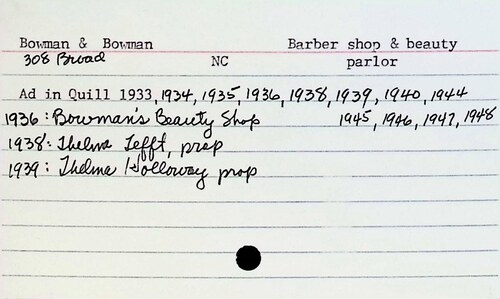 Bowman & Bowman Barber shop & beauty
308 Broad NC parlor
Ad in Quill 1933, 1934, 1935, 1936, 1938, 1939, 1940, 1944
1936: Bowman's Beauty Shop 1945, 1946, 1947, 1948
1938: Thelma Tefft, prop
1939: Thelma Holloway prop